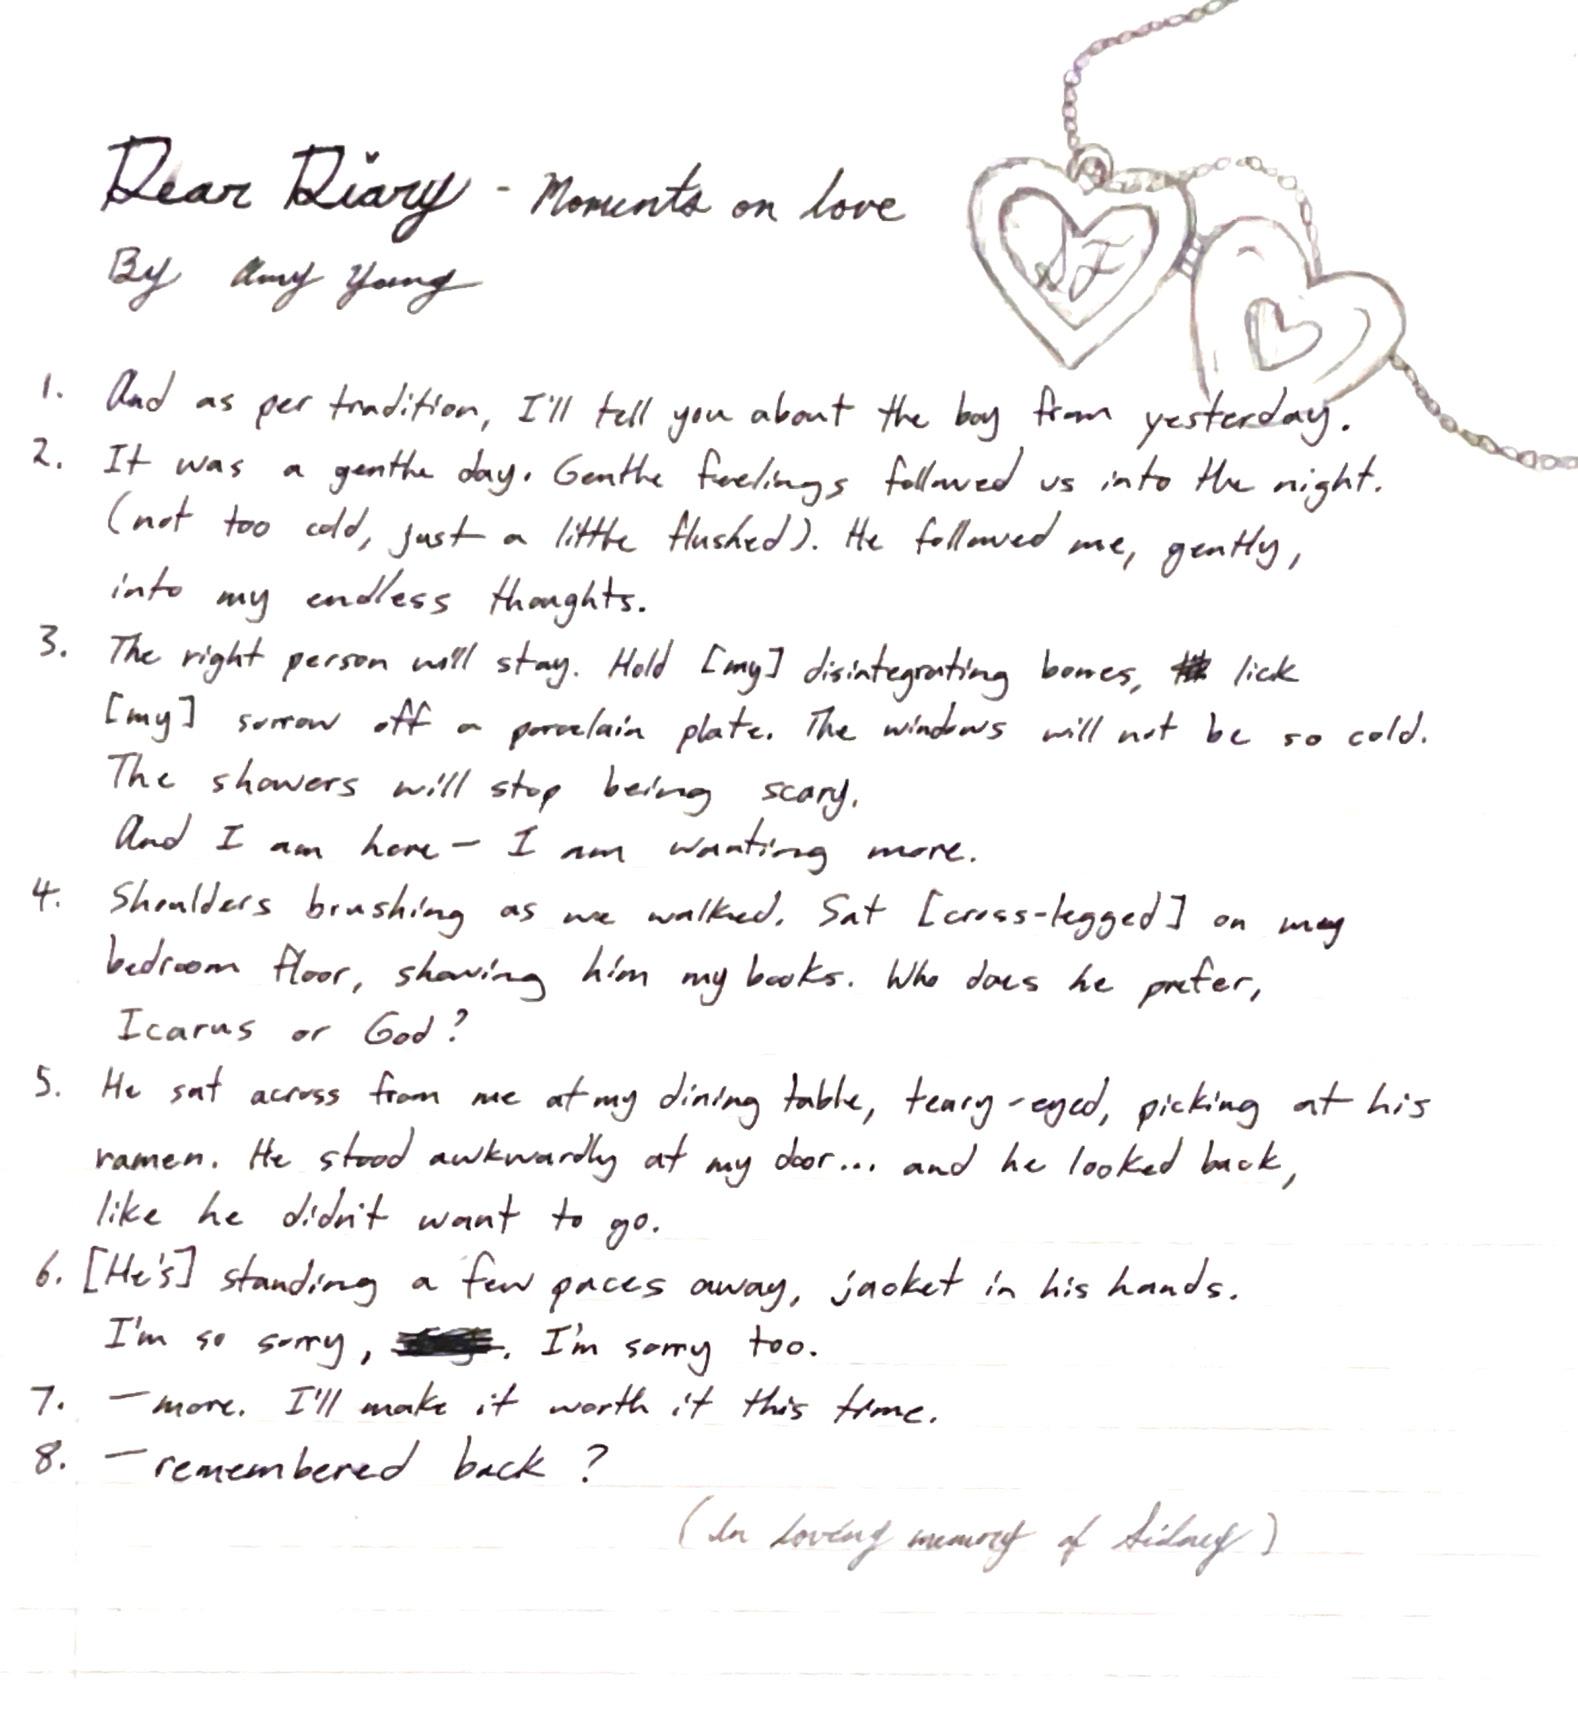 Dear Diary - Moments on love
By Amy Young
1. And as per tradition, I'll tell you about the boy from yesterday.
2. It was a gentle day. Gentle feelings followed us into the night.
(not too cold, just a little flushed). He followed me, gently,
into my endless thoughts.
3. The right person will stay. Hold [my] disintegrating bones, lick
[my] sorrow off a porcelain plate. The windows will not be so cold.
The showers will stop being scary.
And I am here — I am wanting more.
4. Shoulders brushing as we walked. Sat [cross-legged] on my
bedroom floor, showing him my books. Who does he prefer,
Icarus or God?
5. He sat across from me at my dining table, teary-eyed, picking at his
ramen. He stood awkwardly at my door... and he looked back,
like he didn't want to go.
6. [He's] standing a few paces away, jacket in his hands.
I'm so sorry, . I'm sorry too.
7. —more. I'll make it worth it this time.
8. —remembered back?
(In loving memory of Sidney)